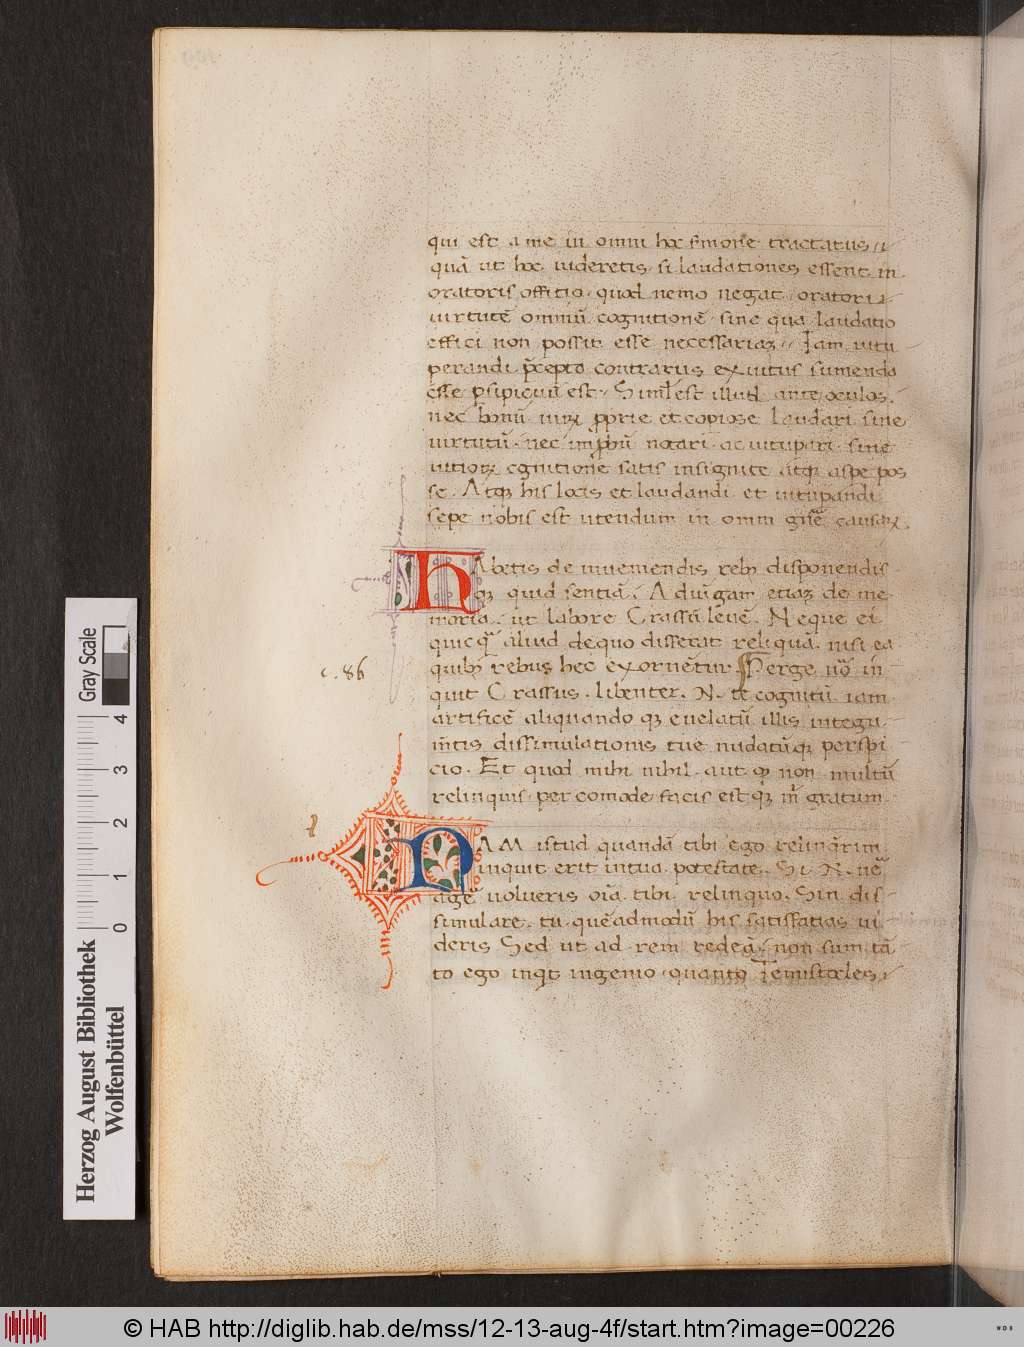 qui est a me in omni hoc s̄mone tractatus
quā ut hoc uideretis si laudationes essent in
oratoris officio quod nemo negat oratori
uirtutē omniū cognitionē sine qua laudatio
effici non possit esse necessariaꝫ Iam uitu
perandi p̄cepta contrariis ex uitiis sumenda
esse ꝑspicuū est Simul est illud ante oculos
nec bonū uirꝝ proprie et copiose laudari sine
uirtutū nec improbū notari ac uituꝑari sine
uitioꝝ cgnitione satis insignite atqꝫ aspe pos
se. Atqꝫ his locis et laudandi et uituꝑandi
sepe nobis est utendum in omni causaꝝ
HAbetis de inueniendis rebꝫ disponendis
qꝫ quid sentiā. Adiūgam etiaꝫ de me
moria ut labore Crassū leuē. Neque ei
quicq̄ aliud de quo disserat reliquā nisi ea
quibꝫ rebus hec exornētur Perge uō in
quit Crassus. libenter. N. te cognitū iam
artificē aliquando qꝫ euelatū illis integu
mētis dissimulationis tue nudatūqꝫ perspi
cio. Et quod mihi nihil aut qꝫ non multū
relinquis percomode facis est qꝫ m̄ gratum
c. 86
NAM istud quandā tibi ego relinqrim
inquit erit in tua potestate. Si N. ue
age uolueris oīa tibi relinquo. Sin dis
simulare tu quēadmodū his satisfatias ui
deris Sed ut ad rem redeā non sum tā
to ego inqt ingenio quanto Temistocles
Gray Scale
0 1 2 3 4
Herzog August Bibliothek
Wolfenbüttel
© HAB http://diglib.hab.de/mss/12-13-aug-4f/start.htm?image=00226